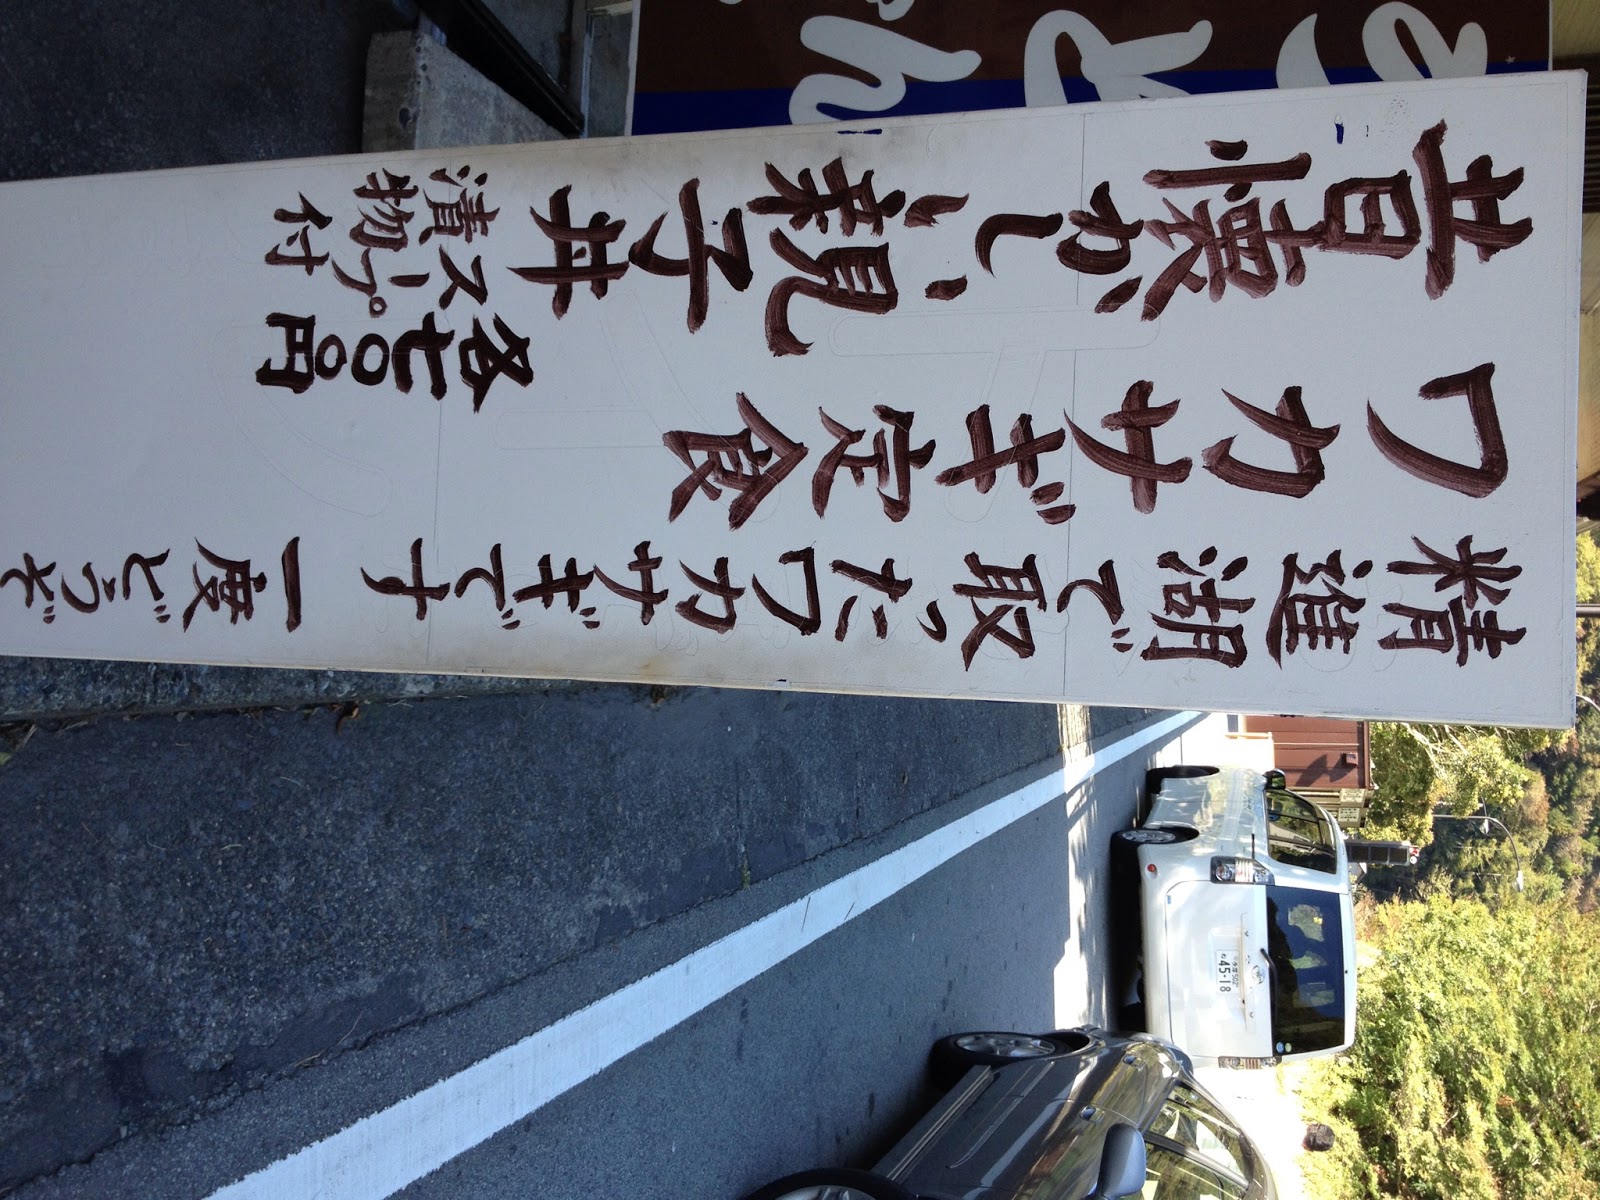 精進湖で取ったワカサギです 一度どうぞ
ワカサギ定食
昔懐かしい親子丼
各七〇〇円
スープ
漬物付
45-18